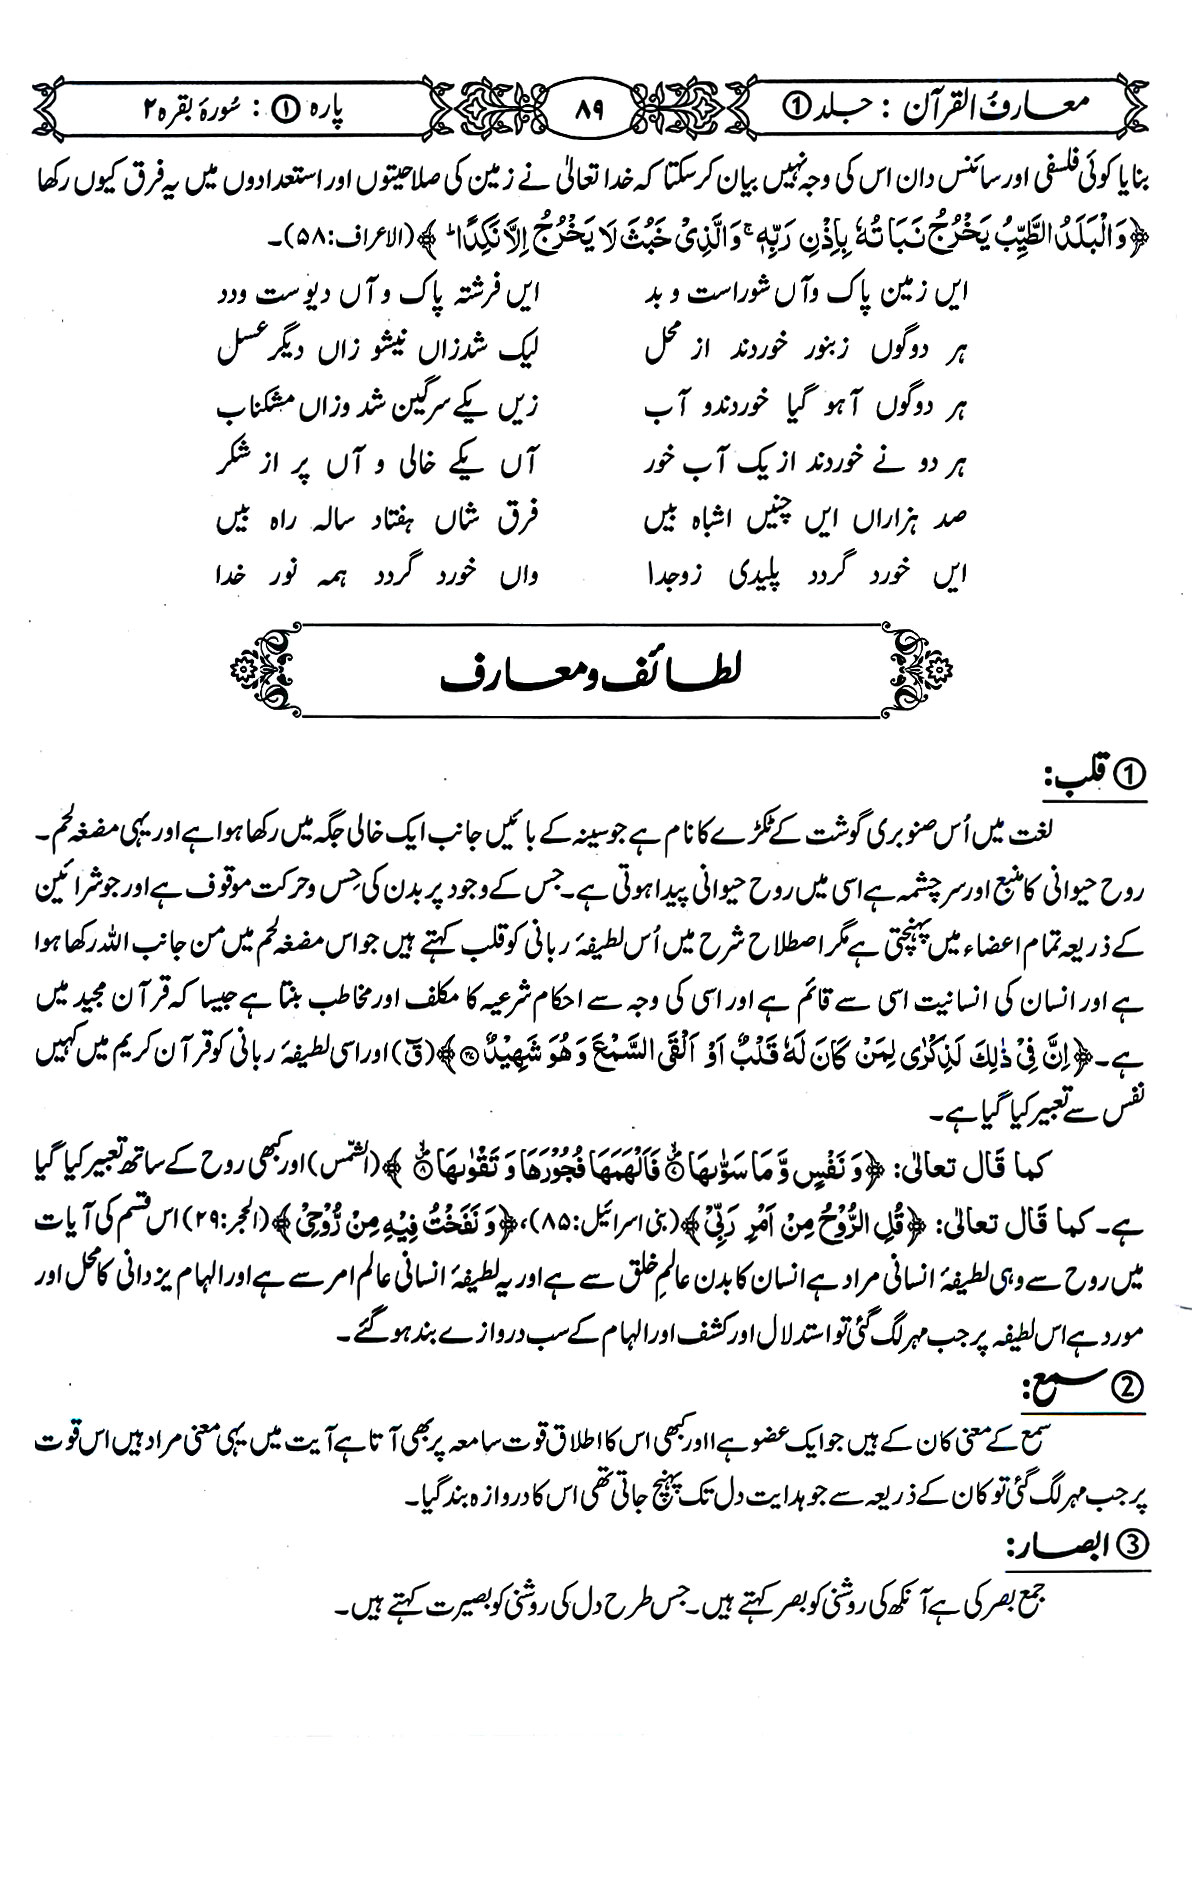 معارف القرآن : جلد ①
۸۹
پارہ ① : سُورۂ بقرہ ۲
بنایا کوئی فلسفی اور سائنس دان اس کی وجہ نہیں بیان کر سکتا کہ خدا تعالیٰ نے زمین کی صلاحیتوں اور استعدادوں میں یہ فرق کیوں رکھا
﴿وَالْبَلَدُ الطَّيِّبُ يَخْرُجُ نَبَاتُهٗ بِاِذْنِ رَبِّهٖ ۚ وَالَّذِىْ خَبُثَ لَا يَخْرُجُ اِلَّا نَكِدًا ؕ﴾ (الاعراف:۵۸)۔
ایں زمین پاک وآں شوراست و بد ایں فرشتہ پاک و آں دیوست ودد
ہر دوگوں زنبور خوردند از محل لیک شدزاں نیشو زاں دیگر عسل
ہر دوگوں آہو گیا خوردندو آب زیں یکے سرگین شد وزاں مشکناب
ہر دو نے خوردند از یک آب خور آں یکے خالی و آں پر از شکر
صد ہزاراں ایں چنیں اشباہ بیں فرق شاں ہفتاد سالہ راہ بیں
ایں خورد گردد پلیدی زوجدا واں خورد گردد ہمہ نور خدا
لطائف و معارف
① قلب:
لغت میں اُس صنوبری گوشت کے ٹکڑے کا نام ہے جو سینہ کے بائیں جانب ایک خالی جگہ میں رکھا ہوا ہے اور یہی مضغہ لحم۔
روح حیوانی کا منبع اور سر چشمہ ہے اسی میں روح حیوانی پیدا ہوتی ہے۔ جس کے وجود پر بدن کی حِس وحرکت موقوف ہے اور جو شرائین
کے ذریعہ تمام اعضاء میں پہنچتی ہے مگر اصطلاح شرح میں اُس لطیفۂ ربانی کو قلب کہتے ہیں جو اس مضغہ لحم میں من جانب اللہ رکھا ہوا
ہے اور انسان کی انسانیت اسی سے قائم ہے اور اسی کی وجہ سے احکام شرعیہ کا مکلف اور مخاطب بنتا ہے جیسا کہ قرآن مجید میں
ہے۔ ﴿اِنَّ فِىْ ذٰلِكَ لَذِكْرٰى لِمَنْ كَانَ لَهٗ قَلْبٌ اَوْ اَلْقَى السَّمْعَ وَهُوَ شَهِيْدٌ ۝۳۷﴾ (قٓ) اور اسی لطیفۂ ربانی کو قرآن کریم میں کہیں
نفس سے تعبیر کیا گیا ہے۔
کما قال تعالیٰ: ﴿وَنَفْسٍ وَّمَا سَوّٰىهَا ۝۷ فَاَلْهَمَهَا فُجُوْرَهَا وَتَقْوٰىهَا ۝۸﴾ (الشمس) اور کبھی روح کے ساتھ تعبیر کیا گیا
ہے۔ کما قال تعالیٰ: ﴿قُلِ الرُّوْحُ مِنْ اَمْرِ رَبِّىْ﴾ (بنی اسرائیل:۸۵)، ﴿وَنَفَخْتُ فِيْهِ مِنْ رُّوْحِىْ﴾ (الحجر:۲۹) اس قسم کی آیات
میں روح سے وہی لطیفۂ انسانی مراد ہے انسان کا بدن عالمِ خلق سے ہے اور یہ لطیفۂ انسانی عالم امر سے ہے اور الہام یزدانی کا محل اور
مورد ہے اس لطیفہ پر جب مہر لگ گئی تو استدلال اور کشف اور الہام کے سب دروازے بند ہو گئے۔
② سمع:
سمع کے معنی کان کے ہیں جو ایک عضو ہے ااور کبھی اس کا اطلاق قوت سامعہ پر بھی آتا ہے آیت میں یہی معنی مراد ہیں اس قوت
پر جب مہر لگ گئی تو کان کے ذریعہ سے جو ہدایت دل تک پہنچ جاتی تھی اس کا دروازہ بند گیا۔
③ ابصار:
جمع بصر کی ہے آنکھ کی روشنی کو بصر کہتے ہیں۔ جس طرح دل کی روشنی کو بصیرت کہتے ہیں۔